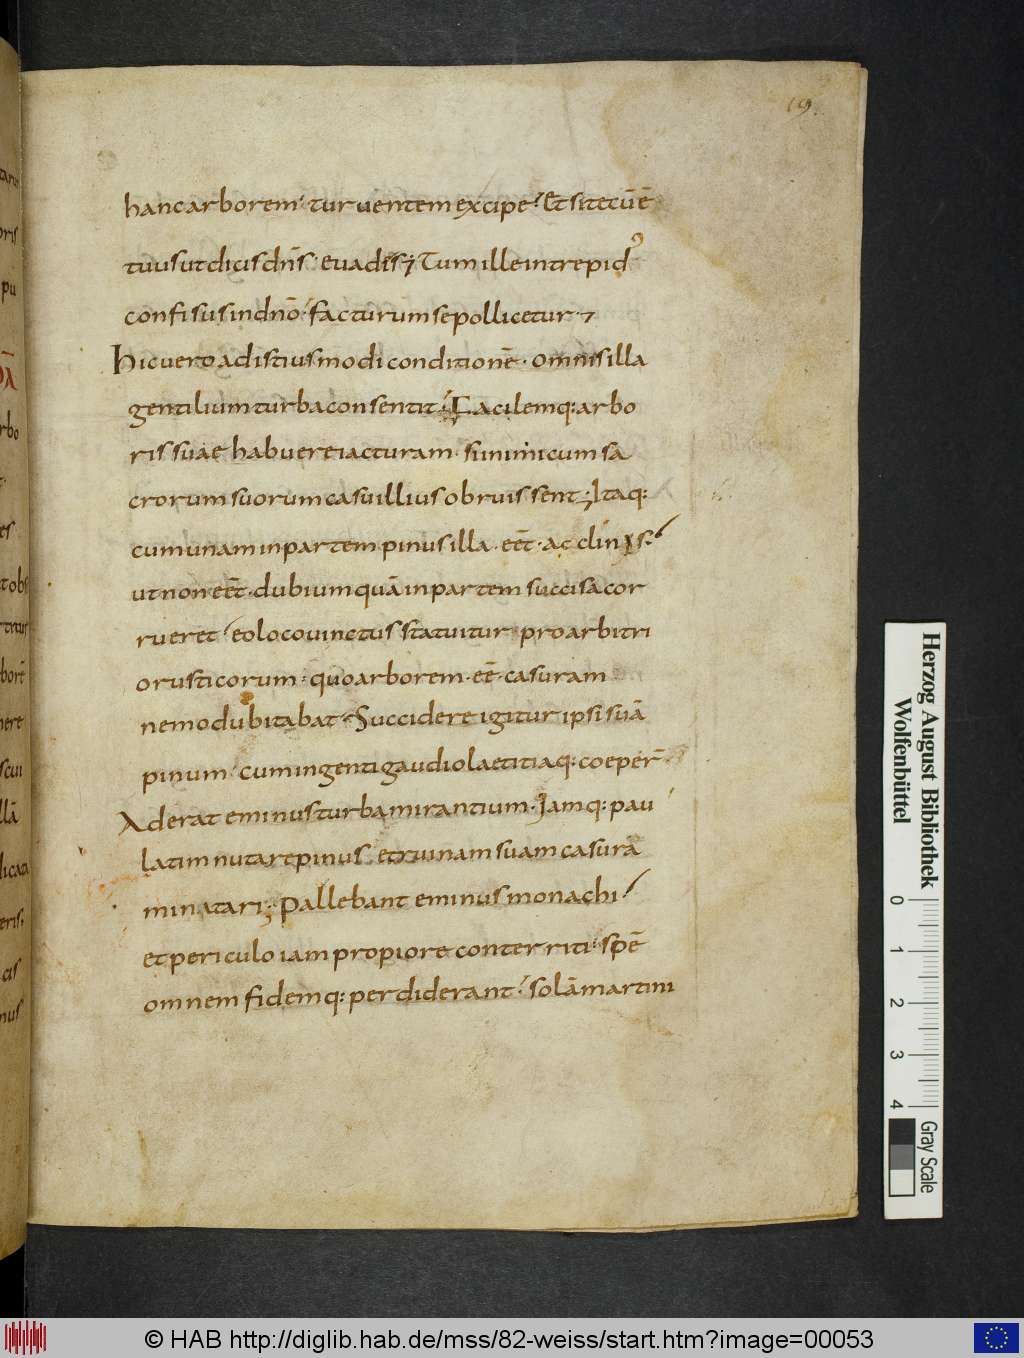 19.
hancarborem· turuentem excipe· Et sitecū ē
tuus ut dicis dn̄s· euadis; Tum ille intrepidꝰ
confisus in dn̄o· facturum se pollicetur·
Hic uero ad istius modi conditionē· omnis illa
gentilium turba consentit· Facilemq: arbo
ris suae habuere iacturam· si inimicum sa
crorum suorum casu illius obruissent; Itaq:
cum unam in partem pinus illa· eēt· acclinis·
ut non eēt· dubium quā in partem succisa cor
rueret· eo loco uinctus statuitur pro arbitri
o rusticorum· quo arborem· eē· casuram
nemo dubitabat· Succidere igitur ipsi suā
pinum· cum ingenti gaudio laetitiaq: coeper̄·
Aderat eminus turba mirantium· Iamq: pau
latim nutare pinus· et ruinam suam casura
minatari; Pallebant eminus monachi
et periculo iam propiore conterriti· spē
omnem fidemq: perdiderant· solā martini
Herzog August Bibliothek
Wolfenbüttel
0 1 2 3 4
Gray Scale
© HAB http://diglib.hab.de/mss/82-weiss/start.htm?image=00053